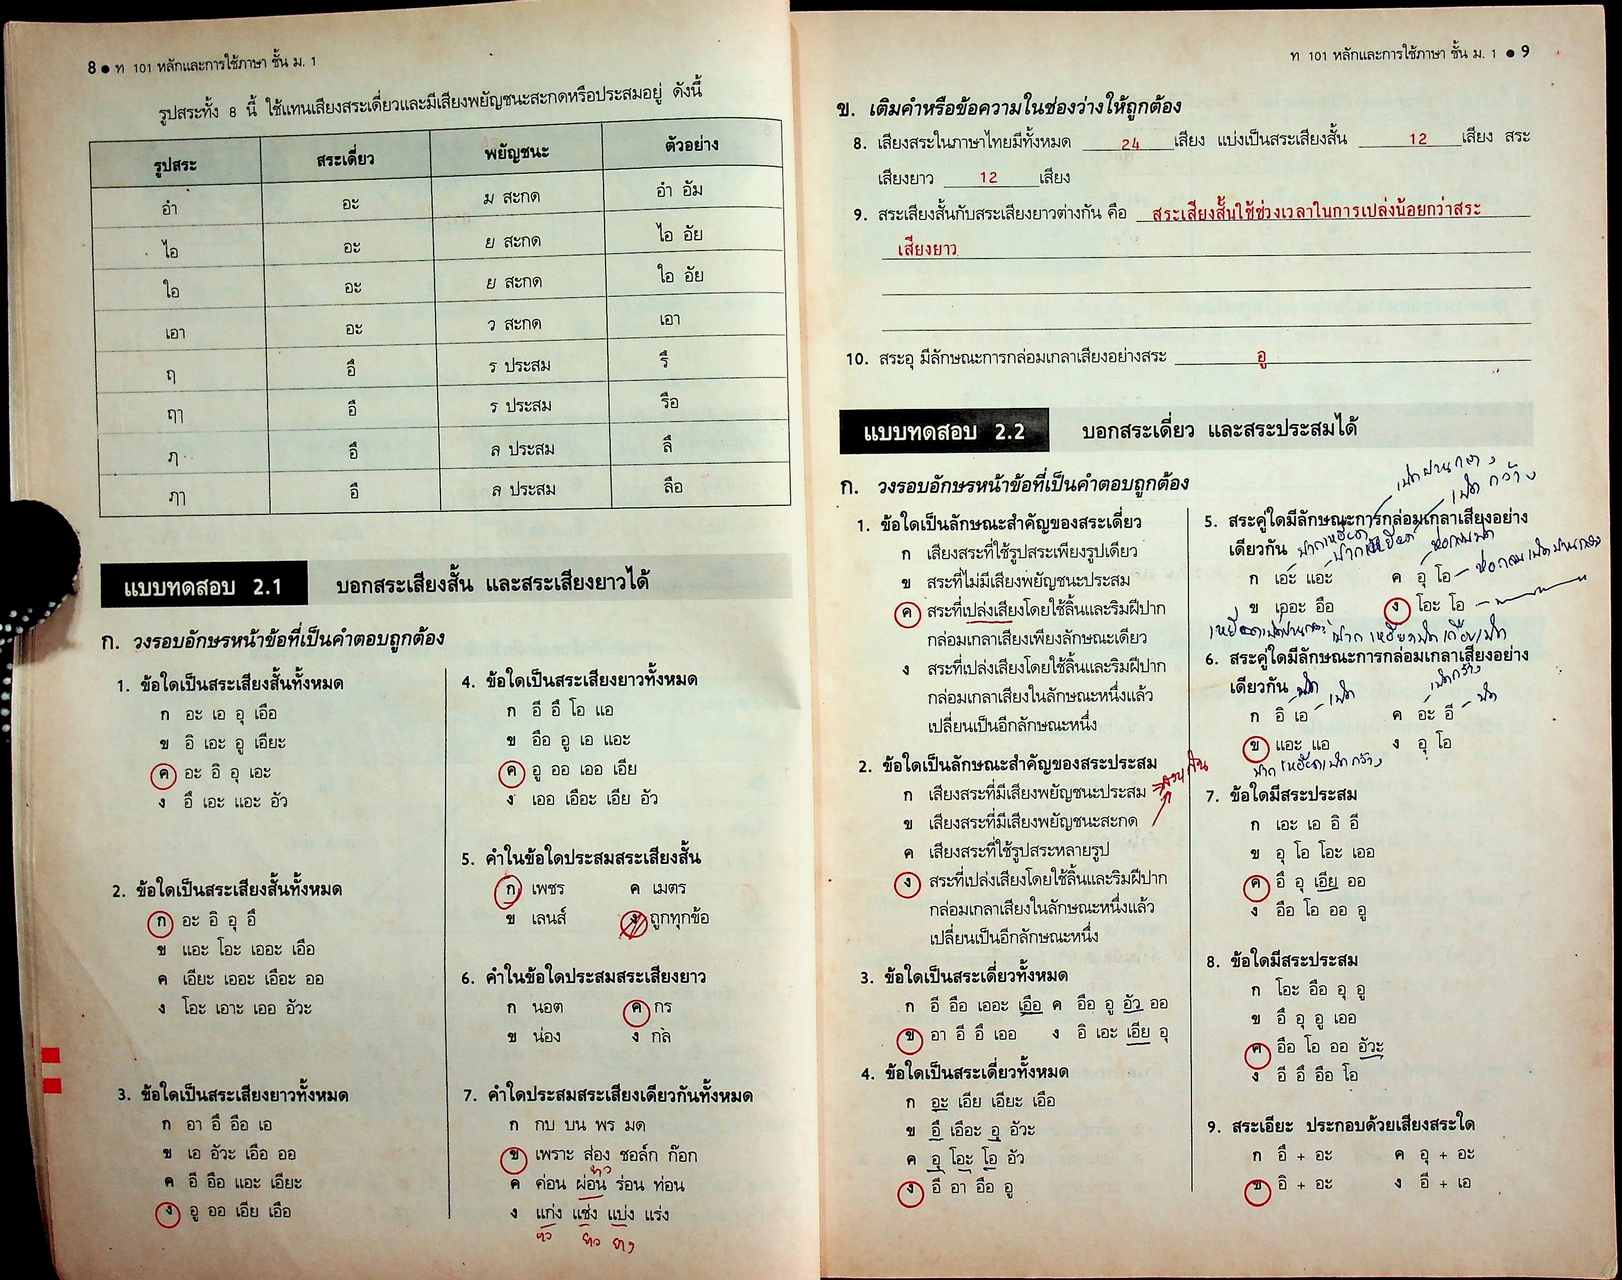 8 ● ท 101 หลักและการใช้ภาษา ชั้น ม. 1
รูปสระทั้ง 8 นี้ ใช้แทนเสียงสระเดี่ยวและมีเสียงพยัญชนะสะกดหรือประสมอยู่ ดังนี้
รูปสระ สระเดี่ยว พยัญชนะ ตัวอย่าง
อำ อะ ม สะกด อำ อัม
ไอ อะ ย สะกด ไอ อัย
ใอ อะ ย สะกด ใอ อัย
เอา อะ ว สะกด เอา
ฤ อึ ร ประสม รึ
ฤๅ อื ร ประสม รือ
ฦ อึ ล ประสม ลึ
ฦๅ อื ล ประสม ลือ
แบบทดสอบ 2.1 บอกสระเสียงสั้น และสระเสียงยาวได้
ก. วงรอบอักษรหน้าข้อที่เป็นคำตอบถูกต้อง
1. ข้อใดเป็นสระเสียงสั้นทั้งหมด
ก อะ เอ อุ เอือ
ข อิ เอะ อู เอียะ
ค อะ อิ อุ เอะ
ง อึ เอะ แอะ อัว
2. ข้อใดเป็นสระเสียงสั้นทั้งหมด
ก อะ อิ อุ อึ
ข แอะ โอะ เออะ เอือ
ค เอียะ เออะ เอือะ ออ
ง โอะ เอาะ เออ อัวะ
3. ข้อใดเป็นสระเสียงยาวทั้งหมด
ก อา อี อือ เอ
ข เอ อัวะ เอือ ออ
ค อี อือ แอะ เอียะ
ง อู ออ เอีย เอือ
4. ข้อใดเป็นสระเสียงยาวทั้งหมด
ก อี อึ โอ แอ
ข อือ อู เอ แอะ
ค อู ออ เออ เอีย
ง เออ เอือะ เอีย อัว
5. คำในข้อใดประสมสระเสียงสั้น
ก เพชร ค เมตร
ข เลนส์ ง ถูกทุกข้อ
6. คำในข้อใดประสมสระเสียงยาว
ก นอต ค กร
ข น่อง ง กล
7. คำใดประสมสระเสียงเดียวกันทั้งหมด
ก กบ บน พร มด
ข เพราะ ส่อง ชอล์ก ก๊อก
ยาว
ค ค่อน ผ่อน ร่อน ท่อน
ง แก่ง แช่ง แบ่ง แร่ง
ท 101 หลักและการใช้ภาษา ชั้น ม. 1 ● 9
ข. เติมคำหรือข้อความในช่องว่างให้ถูกต้อง
8. เสียงสระในภาษาไทยมีทั้งหมด 24 เสียง แบ่งเป็นสระเสียงสั้น 12 เสียง สระ
เสียงยาว 12 เสียง
9. สระเสียงสั้นกับสระเสียงยาวต่างกัน คือ สระเสียงสั้นใช้ช่วงเวลาในการเปล่งน้อยกว่าสระ
เสียงยาว
10. สระอุ มีลักษณะการกล่อมเกลาเสียงอย่างสระ อู
แบบทดสอบ 2.2 บอกสระเดี่ยว และสระประสมได้
ก. วงรอบอักษรหน้าข้อที่เป็นคำตอบถูกต้อง
1. ข้อใดเป็นลักษณะสำคัญของสระเดี่ยว
ก เสียงสระที่ใช้รูปสระเพียงรูปเดียว
ข สระที่ไม่มีเสียงพยัญชนะประสม
ค สระที่เปล่งเสียงโดยใช้ลิ้นและริมฝีปาก
กล่อมเกลาเสียงเพียงลักษณะเดียว
ง สระที่เปล่งเสียงโดยใช้ลิ้นและริมฝีปาก
กล่อมเกลาเสียงในลักษณะหนึ่งแล้ว
เปลี่ยนเป็นอีกลักษณะหนึ่ง
2. ข้อใดเป็นลักษณะสำคัญของสระประสม
ก เสียงสระที่มีเสียงพยัญชนะประสม
ข เสียงสระที่มีเสียงพยัญชนะสะกด
ค เสียงสระที่ใช้รูปสระหลายรูป
ง สระที่เปล่งเสียงโดยใช้ลิ้นและริมฝีปาก
กล่อมเกลาเสียงในลักษณะหนึ่งแล้ว
เปลี่ยนเป็นอีกลักษณะหนึ่ง
3. ข้อใดเป็นสระเดี่ยวทั้งหมด
ก อี อือ เออะ เอือ ค อือ อู อัว ออ
ข อา อี อึ เออ ง อิ เอะ เอีย อุ
4. ข้อใดเป็นสระเดี่ยวทั้งหมด
ก อะ เอีย เอียะ เอือ
ข อึ เอือะ อุ อัวะ
ค อุ โอะ โอ อัว
ง อี อา อือ อู
เปิดปานกลาง
เปิดกว้าง
5. สระคู่ใดมีลักษณะการกล่อมเกลาเสียงอย่าง
เดียวกัน
ก เอะ แอะ ค อุ โอ
ข เออะ อือ ง โอะ โอ
6. สระคู่ใดมีลักษณะการกล่อมเกลาเสียงอย่าง
เดียวกัน
ก อิ เอ ค อะ อี
ข แอะ แอ ง อุ โอ
ปากเหยียดเปิดกว้าง
7. ข้อใดมีสระประสม
ก เอะ เอ อิ อี
ข อุ โอ โอะ เออ
ค อึ อุ เอีย ออ
ง อือ โอ ออ อู
8. ข้อใดมีสระประสม
ก โอะ อือ อุ อู
ข อึ อุ อู เออ
ค อือ โอ ออ อัวะ
ง อี อึ อือ โอ
9. สระเอียะ ประกอบด้วยเสียงสระใด
ก อี + อะ ค อุ + อะ
ข อิ + อะ ง อี + เอ